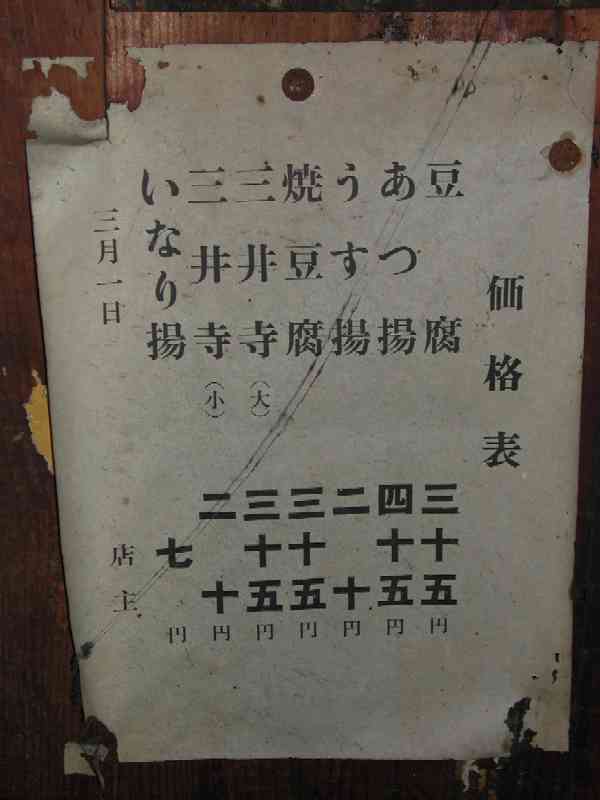 価格表
豆腐 三十五円
あつ揚 四十五円
うす揚 二十円
焼豆腐 三十五円
三井寺(大) 三十五円
三井寺(小) 二十円
いなり揚 七円
三月一日 店主